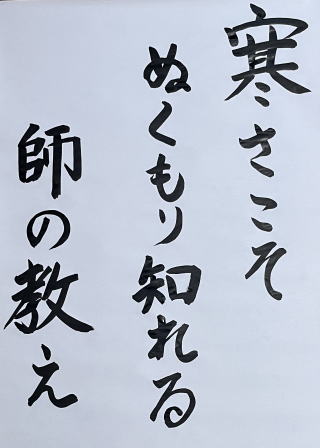 寒さこそ
ぬくもり知れる
師の教え